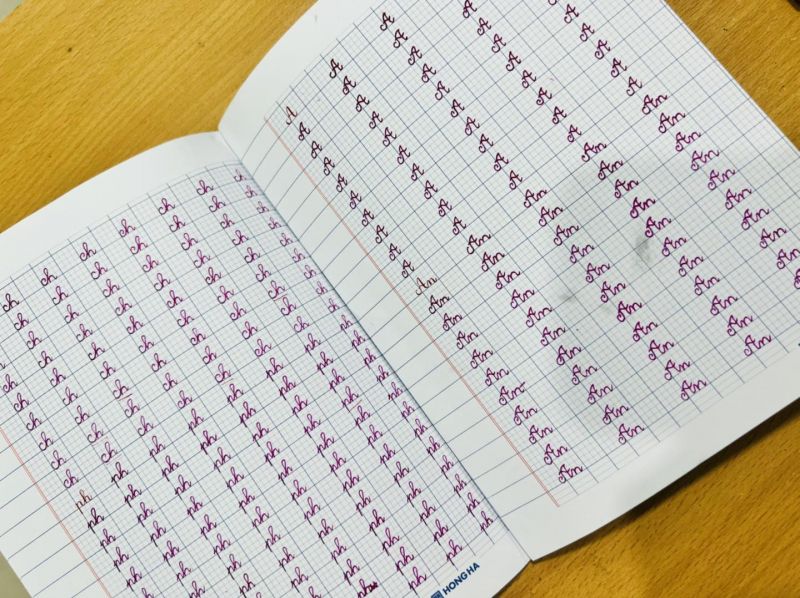 ch ch ch ch ch ch ch
ch ch ch ch ch ch ch
ch ch ch ch ch ch ch
ch ch ch ch ch ch ch
ch ch ch ch ch ch ch ch
ch ch ch ch ch ch ch ch
ch ch ch ch ch ch ch ch
ch ch ch ch ch ch ch ch
ch ch ch ch ch ch ch ch
ph ph ph ph ph ph ph ph
ph ph ph ph ph ph ph ph
ph ph ph ph ph ph ph ph
ph ph ph ph ph ph ph ph
ph ph ph ph ph ph ph ph
ph ph ph ph ph ph ph
ph ph ph ph ph ph
ph ph ph ph ph
ph ph ph ph
ph ph ph
HONG HA
A A A
A A A
A A A A
A A A A
A A A A
A A A A A
A A A A A
A A A A A
A A A A A
A A A A A
An An An An An
An An An An An
An An An An An
An An An An An
An An An An An
An An An An An
An An An An An
An An An An An
An An An An An
An An An An
An An An An